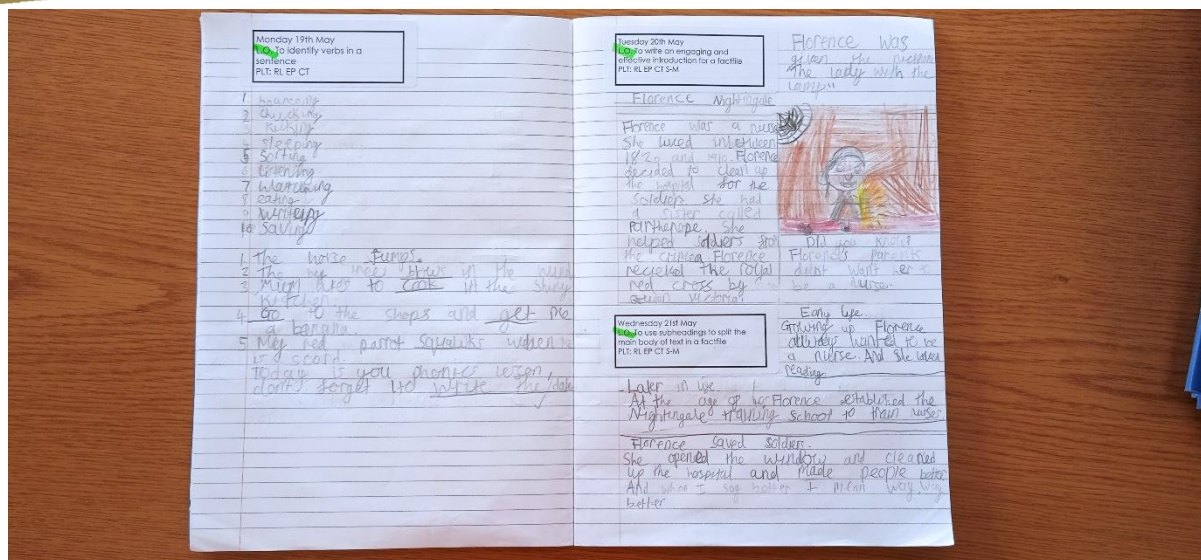 Monday 19th May
L.O. To identify verbs in a
sentence
PLT: RL EP CT
1 bouncing
2 chucking
3 kicking
4 sleeping
5 Sorting
6 listening
7 watching
8 eating
9 writeing
10 Saving
1 The horse Jumps.
2 The tree blows in the wind
3 Mum likes to cook in the shiny
kitchen.
4 Go to the shops and get me
a banana.
5 My red parrot squawks when he
is scard.
Today is you phonics leson,
don't forget to write the date
Tuesday 20th May
L.O. To write an engaging and
effective introduction for a factfile
PLT: RL EP CT S-M
Florence Nightingale
Florence was a nurse
She lived inbetween
1820 and 1910. Florence
decided to clean up
the hospital for the
soldiers. She had
a sister called
Parthenope. She
helped soldiers from
the crimea. Florence
recieved the royal
red cross by
Queen Victoria.
Florence was
given the nickname
"The lady with the
lamp"
Did you know?
Florence's parents
didnt want her to
be a nurse.
Wednesday 21st May
L.O. To use subheadings to split the
main body of text in a factfile
PLT: RL EP CT S-M
Early life
Growing up Florence
allways wanted to be
a nurse. And she loves
reading
Later in life.
At the age of Florence established the
Nightingale training school to train nurses.
Florence saved soldiers.
She opened the window and cleaned
up the hospital and made people better.
And when I say better I mean way, way
better